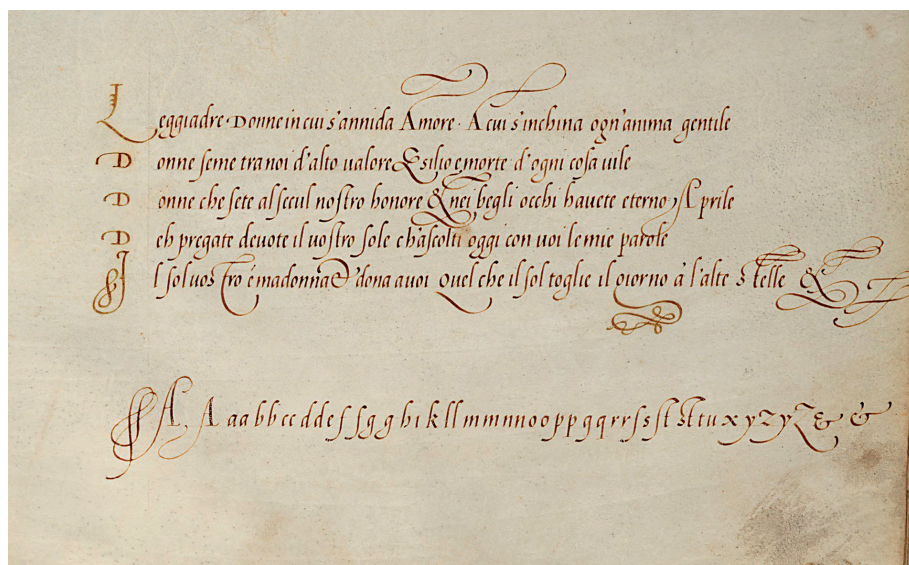 Leggiadre Donne in cui s'annida Amore · A cui s'inchina ogn'anima gentile
Donne seme tra noi d'alto valore Esilio e morte d'ogni cosa vile
Donne che sete al secul nostro honore & nei begli occhi havete eterno Aprile
Deh pregate devote il vostro sole ch'ascolti oggi con voi le mie parole
Il sol vostro è madonna & dona a voi Quel che il sol toglie il giorno à l'alte stelle &
A, A a a b b c c d d e f ſ g g h i k l l m m n n o o p p q q r r ſ s ſt st t u x y z y z & &